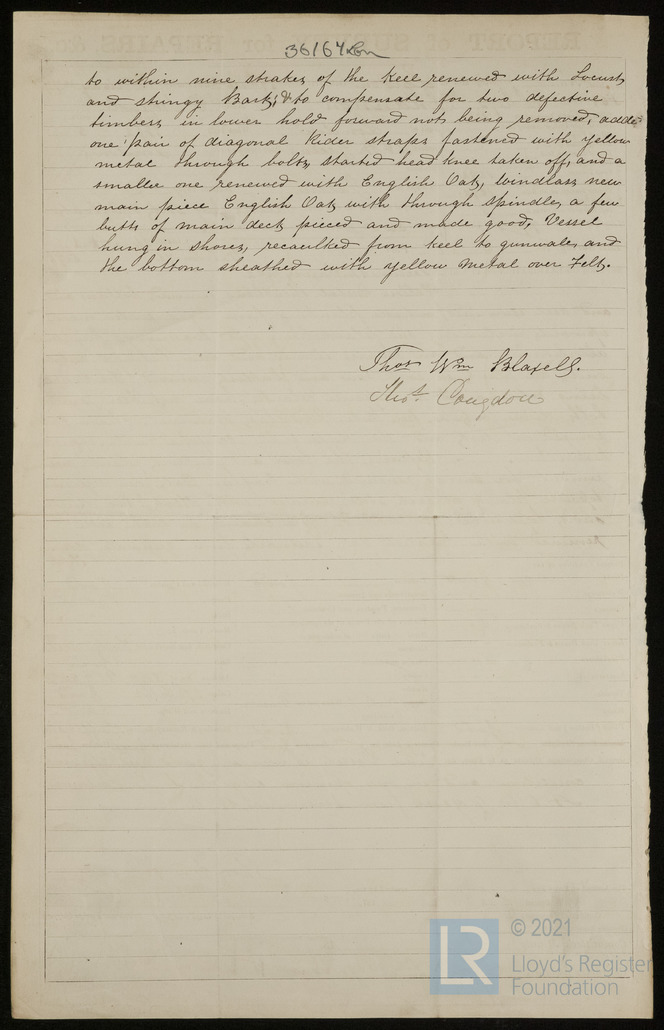 36164 Lon
to within nine strakes of the Keel renewed with Locust,
and stringy Bark; & to compensate for two defective
timbers in lower hold forward not being removed, added
one pair of diagonal Rider straps fastened with yellow
metal through bolts, started head knee taken off, and a
smaller one renewed with English Oak, Windlass new
main piece English Oak with through spindle, a few
butts of main deck pieced and made good. Vessel
hung in shores, recaulked from keel to gunwale, and
the bottom sheathed with yellow Metal over Felt.
Thos Wm Blaxell.
Thos. Congdon
© 2021
LR
Lloyd's Register
Foundation